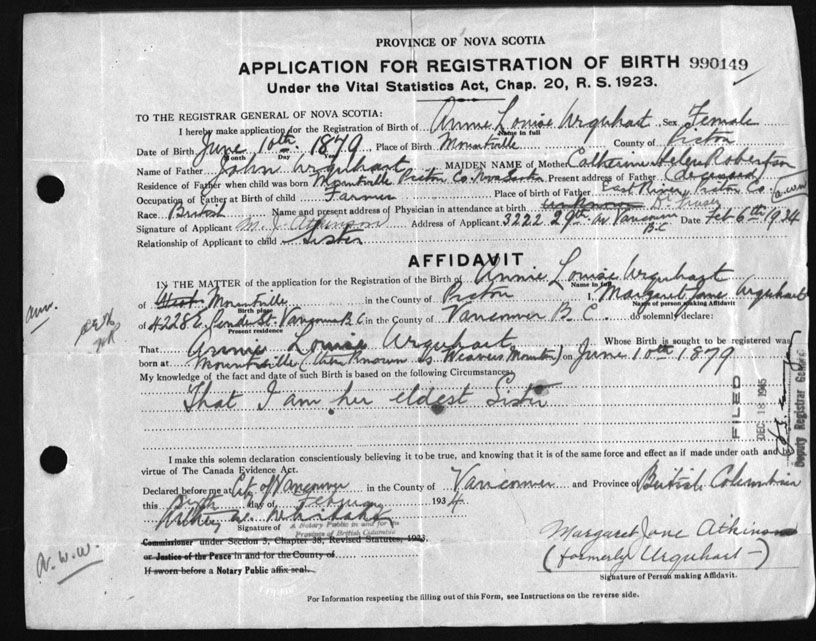 PROVINCE OF NOVA SCOTIA
APPLICATION FOR REGISTRATION OF BIRTH 990149
Under the Vital Statistics Act, Chap. 20, R. S. 1923.
TO THE REGISTRAR GENERAL OF NOVA SCOTIA:
I hereby make application for the Registration of Birth of Annie Louise Urquhart Sex Female
Name in full
Date of Birth June 10th 1879 Place of Birth Mountville County of Pictou
Month Day Year
Name of Father John Urquhart MAIDEN NAME of Mother Catherine Helen Robertson
Residence of Father when child was born Mountville Pictou Co. Nova Scotia Present address of Father (deceased)
Occupation of Father at Birth of child Farmer Place of birth of Father East River, Pictou Co. a.w.w.
Race British Name and present address of Physician in attendance at birth unknown Dr. Fraser
Signature of Applicant M. J. Atkinson Address of Applicant 3222 29th Av Vancouver B.C Date Feb 6th 1934
Relationship of Applicant to child Sister
AFFIDAVIT
IN THE MATTER of the application for the Registration of the Birth of Annie Louise Urquhart
Name in full
of Mountville in the County of Pictou I, Margaret Jane Urquhart
Birth place Name of person making Affidavit
of Pender St. Vancouver B.C. in the County of Vancouver B.C. do solemnly declare:
Present residence
That Annie Louise Urquhart Whose Birth is sought to be registered was
born at Mountville (then known as Weavers Mountain) on June 10th 1879
My knowledge of the fact and date of such Birth is based on the following Circumstances
That I am her eldest Sister
FILED
DEC 18 1945
Deputy Registrar General
I make this solemn declaration conscientiously believing it to be true, and knowing that it is of the same force and effect as if made under oath and by
virtue of The Canada Evidence Act.
Declared before me at City of Vancouver in the County of Vancouver and Province of British Columbia
this day of February 1934
Signature of A Notary Public in and for the
Province of British Columbia
Commissioner under Section 5, Chapter 38, Revised Statutes, 1923.
or Justice of the Peace in and for the County of
If sworn before a Notary Public affix seal.
Margaret Jane Atkinson
(formerly Urquhart)
Signature of Person making Affidavit.
a.w.w.
For Information respecting the filling out of this Form, see Instructions on the reverse side.